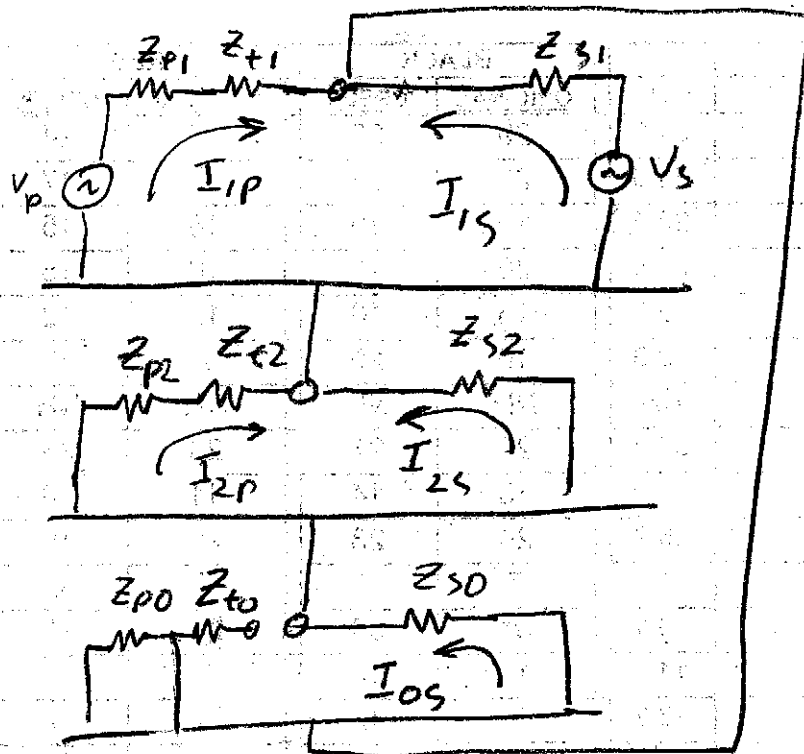 Zp1 Zt1 Zs1
Vp I1P I1S Vs
Zp2 Zt2 Zs2
I2P I2S
Zp0 Zt0 Zs0
I0S